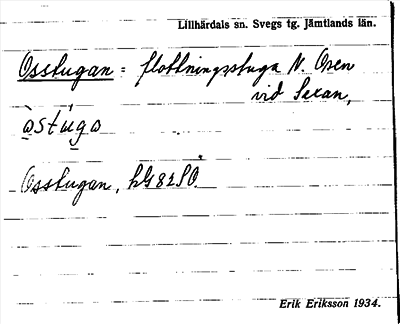 Lillhärdals sn. Svegs tg. Jämtlands län.
Osstugan = flottningsstuga N. Osen
vid Sexan,
òstúgo
Osstugan, hG82SO.
Erik Eriksson 1934.